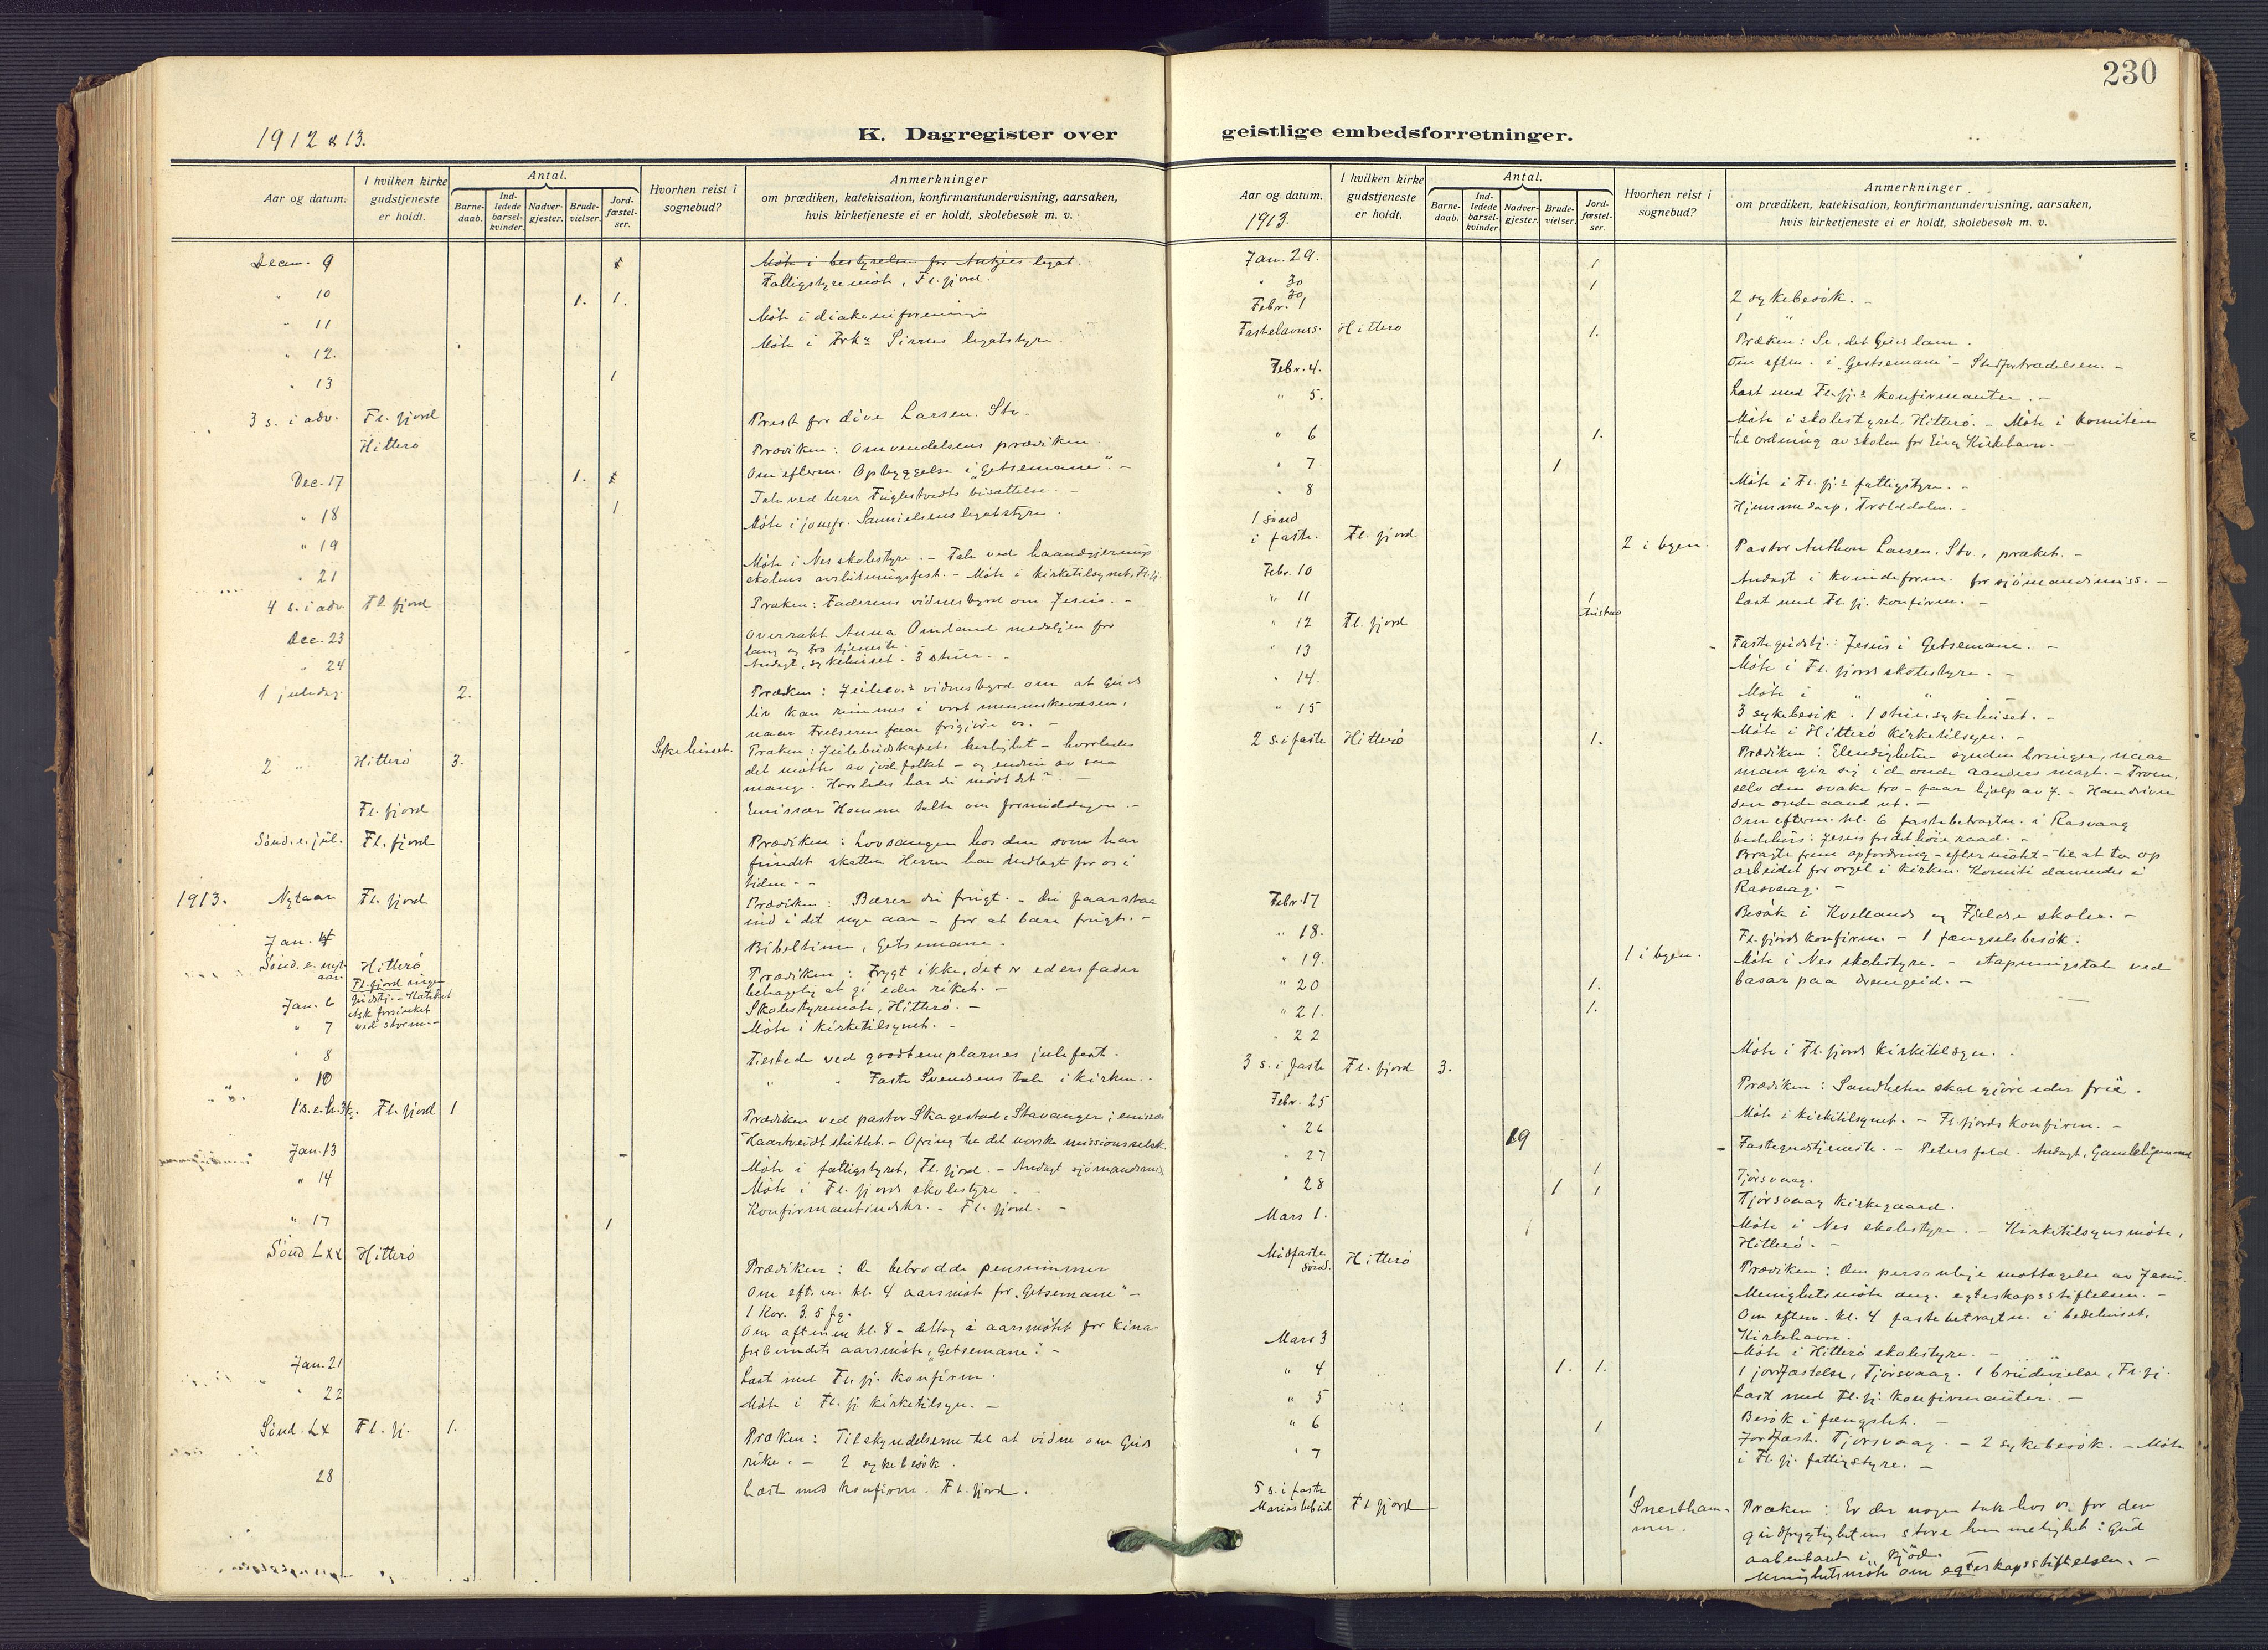 230
1912 & 13.
K. Dagregister over
Aar og datum.
I hvilken kirke
gudstjeneste
er holdt.
Antal.
Barne-
daab.
Ind-
ledede
barsel-
kvinder.
Nadver-
gjester.
Brude-
vielser.
Jord-
fæstel-
ser.
Hvorhen reist i
sognebud?
Anmerkninger
om prædiken, katekisation, konfirmantundervisning, aarsaken,
hvis kirketjeneste ei er holdt, skolebesøk m. v.
Decem. 9 Møte i bestyrelsen for legat.
Fattigstyremøte, Fl.fjord.
" 10 1. 1.
" 11 Møte i diakoniforeningen
" 12. Møte i legatstyre.
" 13 1
3 s. i adv. Fl. fjord Larsen. Stv.
Hitterø Prædiken: Omvendelsens prædiken.
Om efterm. Opbyggelse i "Getsemane". -
Dec. 17 1. Tale ved lærer bisættelse. -
" 18 1 Møte i legatstyre.
" 19
Møte i Nes skolestyre. - Tale ved haandgjernings
" 21 skolens avslutningsfest. - Møte i kirketilsynet, Fl.fj.
4 s. i adv Fl. fjord Præken: Faderens vidnesbyrd om Jesus. -
Dec. 23 Overrakt Anna Omland medaljen for
lang og tro tjeneste.
" 24 Andagt, sykehuset. 3 stuer. -
1 juledag 2. Præken: vidnesbyrd om at Guds
liv kan rummes i vort menneskevæsen,
naar Frelseren faar frigjøre os. -
2 " Hitterø 3. Sykehuset. Præken: Julebudskapets herlighet - hvorledes
det møttes av julefolket - og endnu av saa
mange. Hvorledes har du møtt det? -
Fl. fjord Emissær Homme talte om formiddagen. -
Sønd. e. jul. Fl. fjord Prædiken: Lovsangen hos den som har
fundet skatten Herren har
tiden - -
1913. Nytaar Fl. fjord Prædiken: Bærer du frugt. - Du faar staa
ind i det nye aar - for at bære frugt. -
Jan. 4 Bibeltime, Getsemane.
Sønd. e. nyt-
aar Hitterø Prædiken: Frygt ikke, det er eders fader
Fl.fjord ingen behagelig at gi eder riket. -
Jan. 6 Skolestyremøte, Hitterø. -
" 7 ved storm. - Møte i kirketilsynet. -
" 8 Tilstede ved goodtemplarnes julefest.
" 10 " " Faste Svendsens tale i kirken. -
1 s. e. h. 3 kg. Fl. fjord 1 Prædiken ved pastor Skagestad, Stavanger;
sluttet. - Ofring til det norske missionsselsk.
Jan. 13 Møte i fattigstyret, Fl. fjord. - Andagt
" 14 Møte i Fl. fjords skolestyre
Konfirmantindskr. - Fl. fjord. -
" 17 1
Sønd LXX Hitterø Prædiken: De betrodde
Om eft.m. kl. 4 aarsmøte for "Getsemane" -
1 Kor. 3. 5 fg.
Om aftenen kl. 8 - deltog i aarsmøtet for Kina-
forbundets aarsmøte, "Getsemane". -
Jan. 21 Læst med Fl. fj. konfirm.
" 22 Møte i Fl. fj. kirketilsyn. -
Sønd. LX Fl. fj. 1. Præken: Tilskyndelserne til at vidne om Guds
rike. - 2 sykebesøk.
28 Læst med konfirm. Fl. fjord.
geistlige embedsforretninger.
Aar og datum.
1913.
I hvilken kirke
gudstjeneste
er holdt.
Antal.
Barne-
daab.
Ind-
ledede
barsel-
kvinder
Nadver-
gjester.
Brude-
vielser.
Jord-
fæstel-
ser.
Hvorhen reist i
sognebud?
Anmerkninger
om prædiken, katekisation, konfirmantundervisning, aarsaken,
hvis kirketjeneste ei er holdt, skolebesøk m. v.
Jan. 29. 1
" 30 1 2 sykebesøk. -
Febr. 1
Fastelavnss. Hitterø 1. Præken: Se, det Guds lam.
Om efterm. i "Getsemane" - Stedfortrædelsen. -
Febr. 4.
" 5. Læst med Fl.fj.s konfirmanter. -
" 6 1. Møte i skolestyret, Hitterø. - Møte i komiteen
til ordning av skolen for Eie og Kirkehavn. -
" 7 1
" 8 Møte i Fl. fj.s fattigstyre. -
Hjemmedaap,
1 sønd
i faste. Fl. fjord 2 i byen. Pastor Anthon Larsen, Stv., præket. -
Febr. 10 Andagt i kvindeforen. for sjømandsmiss. -
" 11 1 Læst med Fl. fj. konfirm. -
" 12 Fl. fjord Fastegudstj.: Jesus i Getsemane. -
" 13 Møte i Fl. fjord skolestyre. -
" 14. Møte i " "
" 15 3 sykebesøk. 1 stue, sykehuset. -
Møte i Hitterø kirketilsyn. -
2 s. i faste Hitterø 1. Prædiken: Elendigheten synden bringer, naar
man gir sig i de onde aanders magt. - Troen,
selv den svake tro - faar hjælp av J. - Han driver
den onde aand ut. -
Om efterm. kl. 6 fastebetragtn. i Rasvaag
bedehus: Jesus for det høie raad. -
Bragte frem opfordring - efter møtet - til at ta op
arbeidet for orgel i kirken. Komite dannedes i
Rasvaag. -
Febr. 17 Besøk i Kvellands og Fjeldse skoler. -
" 18. Fl. fjords konfirm. - 1 fængselsbesøk.
" 19. 1 i byen. Møte i Nes skolestyre. - Aapningstale ved
" 20 1. basar paa Drangeid. -
" 21. 1.
" 22 Møte i Fl. fjords kirketilsyn. -
3 s. i faste Fl. fjord 3. Prædiken: Sandheten skal gjøre eder frie.
Febr. 25 Møte i kirketilsynet. - Fl. fjords konfirm. -
" 26 19 Fastegudstjeneste. - Peters fald. Andagt, Gamlehjemmet
" 27 1 Tjørsvaag.
" 28 1 1 Tjørsvaag kirkegaard.
Mars 1. Møte i Nes skolestyre. - Kirketilsynsmøte,
Hitterø. -
Midfaste
sønd. Hitterø Prædiken: Den personlige mottagelse av Jesus.
Menighetsmøte ang. egteskapsstiftelsen. -
Om efterm. kl. 4 fastebetragtn. i bedehuset,
Kirkehavn.
Mars 3 Møte i Hitterø skolestyre. -
" 4 1. 1. 1 jordfæstelse, Tjørsvaag. 1 brudevielse, Fl. fj.
" 5 Læst med Fl. fj. konfirmanter. -
Besøk i fængslet. -
" 6 1 Jordfæst. Tjørsvaag. - 2 sykebesøk. - Møte
" 7 i Fl. fj. fattigstyre. -
5 s. i faste
Marias bebud Fl fjord 1 Præken: Er der nogen tak hos os for den
gudfrygtighetens store hemmelighet: Gud
aabenbaret i kjød.
Menighetsmøte om egteskapsstiftelsen. -